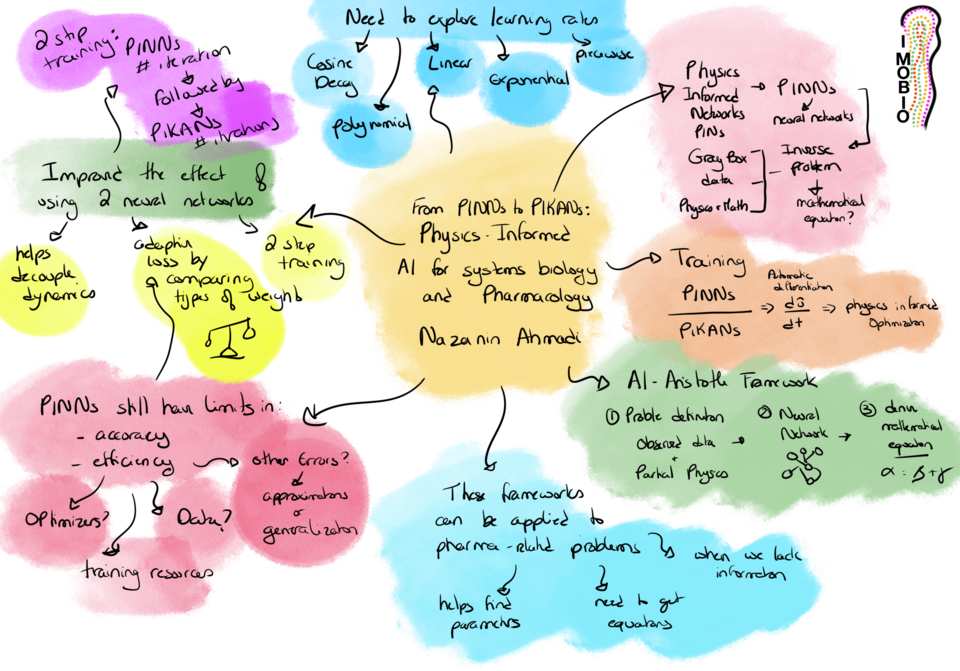 2 step
training:
PINNs
# iteration
Followed by
PIKANs
# iterations
Need to explore learning rates
Cosine
Decay
polynomial
Linear
Exponential
piecewise
Physics
Informed
Networks
PINs
PINNs
neural networks
Inverse
problem
mathematical
equation?
Gray Box
data
Physics + Math
IMOBIO
Improved the effect of
using 2 neural networks
helps
decouple
dynamics
loss by
comparing
types of weights
2 step
training
From PINNs to PIKANs:
Physics-Informed
AI for systems biology
and Pharmacology
Nazanin Ahmadi
Training
PINNs
PIKANs
Automatic
differentiation
dt
physics informed
Optimization
AI-Aristotle Framework
① Problem definition
Observed data
+
Partial Physics
② Neural
Network
③ derive
mathematical
equation
α = β + γ
PINNs still have limits in:
- accuracy
- efficiency
other Errors?
approximations
or
generalization
Optimizers?
Data?
training resources
These frameworks
can be applied to
pharma-related problems
when we lack
information
helps find
parameters
need to get
equations